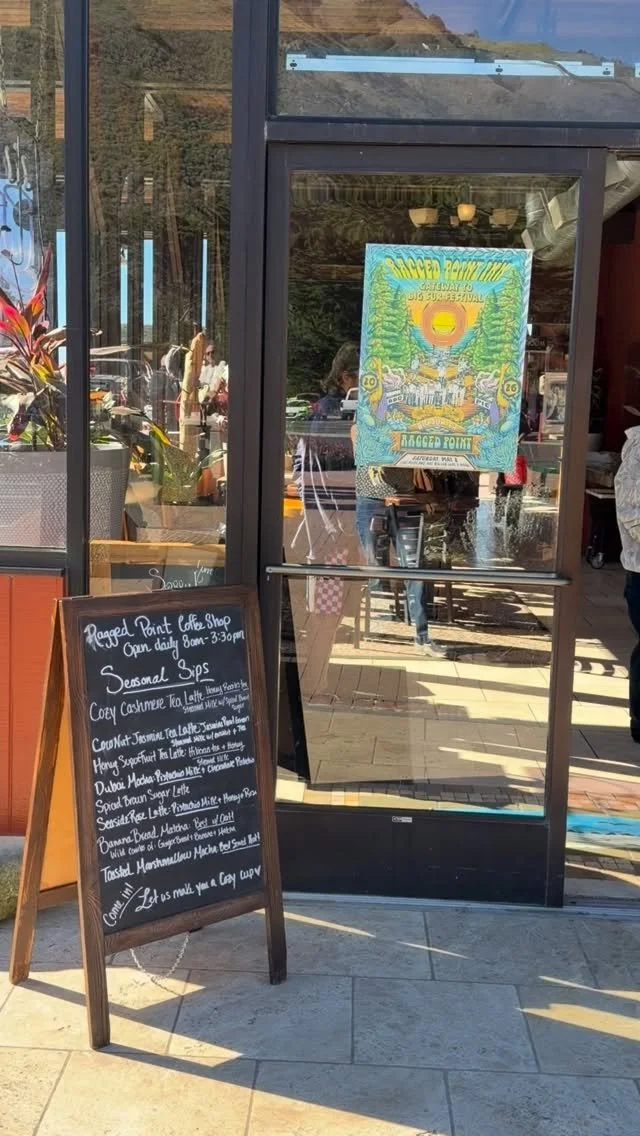 RAGGED POINT INN
GATEWAY TO
BIG SUR FESTIVAL
20
26
RAGGED POINT
SATURDAY, MAY
Ragged Point Coffee Shop
Open daily 8am-3:30pm
Seasonal Sips
Cozy Cashmere Tea Latte
Steamed Milk w/
CocoNut Jasmine Tea Latte:
Steamed Milk w/
Honey Sugar Fruit Tea Latte: Hibiscus tea + Honey
Steamed Milk
Dubai Mocha: Pistachio Milk + Chocolate Pistachio
Spiced Brown Sugar Latte
Seaside Rose Latte: Pistachio Milk + Honey + Rose
Banana Bread Matcha: Best of Out!
Wild combo of: GingerBread + Banana + Matcha
Toasted Marshmallow Mocha:
Come in! Let us make you a Cozy cup ♥